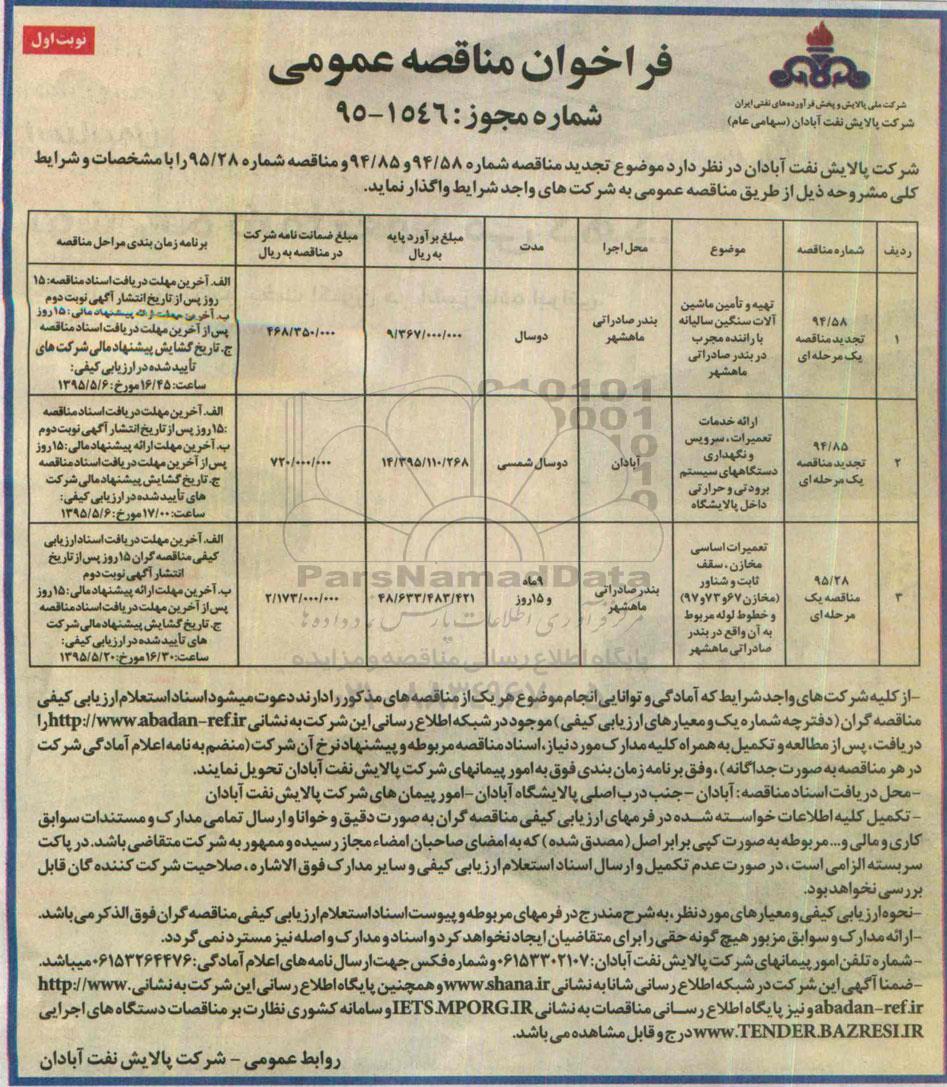 نوبت اول
فراخوان مناقصه عمومی
شماره مجوز: ۱۵۴۶-۹۵
شرکت ملی پالایش و پخش فرآورده‌های نفتی ایران
شرکت پالایش نفت آبادان (سهامی عام)
شرکت پالایش نفت آبادان در نظر دارد موضوع تجدید مناقصه شماره ۹۴/۵۸ و ۹۴/۸۵ و مناقصه شماره ۹۵/۲۸ را با مشخصات و شرایط
کلی مشروحه ذیل از طریق مناقصه عمومی به شرکت های واجد شرایط واگذار نماید.
ردیف
شماره مناقصه
موضوع
محل اجرا
مدت
مبلغ برآورد پایه
به ریال
مبلغ ضمانت نامه شرکت
در مناقصه به ریال
برنامه زمان بندی مراحل مناقصه
۱
۹۴/۵۸
تجدید مناقصه
یک مرحله ای
تهیه و تأمین ماشین
آلات سنگین سالیانه
با راننده مجرب
در بندر صادراتی
ماهشهر
بندر صادراتی
ماهشهر
دوسال
۹/۳۶۷/۰۰۰/۰۰۰
۴۶۸/۳۵۰/۰۰۰
الف. آخرین مهلت دریافت اسناد مناقصه: ۱۵
روز پس از تاریخ انتشار آگهی نوبت دوم
ب. آخرین مهلت ارائه پیشنهاد مالی: ۱۵ روز
پس از آخرین مهلت دریافت اسناد مناقصه
ج. تاریخ گشایش پیشنهاد مالی شرکت های
تأیید شده در ارزیابی کیفی:
ساعت: ۱۶/۴۵ مورخ: ۱۳۹۵/۵/۶
۲
۹۴/۸۵
تجدید مناقصه
یک مرحله ای
ارائه خدمات
تعمیرات، سرویس
و نگهداری
دستگاههای سیستم
برودتی و حرارتی
داخل پالایشگاه
آبادان
دوسال شمسی
۱۴/۳۹۵/۱۱۰/۲۶۸
۷۲۰/۰۰۰/۰۰۰
الف. آخرین مهلت دریافت اسناد مناقصه
:۱۵ روز پس از تاریخ انتشار آگهی نوبت دوم
ب. آخرین مهلت ارائه پیشنهاد مالی: ۱۵ روز
پس از آخرین مهلت دریافت اسناد مناقصه
ج. تاریخ گشایش پیشنهاد مالی شرکت
های تأیید شده در ارزیابی کیفی:
ساعت: ۱۷/۰۰ مورخ: ۱۳۹۵/۵/۶
۳
۹۵/۲۸
مناقصه یک
مرحله ای
تعمیرات اساسی
مخازن، سقف
ثابت و شناور
(مخازن ۶۷ و ۷۳ و ۹۷)
و خطوط لوله مربوط
به آن واقع در بندر
صادراتی ماهشهر
بندر صادراتی
ماهشهر
۹ ماه
و ۱۵ روز
۴۸/۶۳۳/۴۸۳/۴۲۱
۲/۱۷۳/۰۰۰/۰۰۰
الف. آخرین مهلت دریافت اسناد ارزیابی
کیفی مناقصه گران ۱۵ روز پس از تاریخ
انتشار آگهی نوبت دوم
ب. آخرین مهلت ارائه پیشنهاد مالی: ۱۵ روز
پس از آخرین مهلت دریافت اسناد مناقصه
ج. تاریخ گشایش پیشنهاد مالی شرکت
های تأیید شده در ارزیابی کیفی:
ساعت: ۱۶/۳۰ مورخ: ۱۳۹۵/۵/۲۰
ParsNamadData
مرکز فرآوری اطلاعات پارس نماد داده ها
پایگاه اطلاع رسانی مناقصه و مزایده
-از کلیه شرکت های واجد شرایط که آمادگی و توانایی انجام موضوع هر یک از مناقصه های مذکور را دارند دعوت میشود اسناد استعلام ارزیابی کیفی
مناقصه گران (دفترچه شماره یک و معیارهای ارزیابی کیفی) موجود در شبکه اطلاع رسانی این شرکت به نشانی http://www.abadan-ref.ir را
دریافت، پس از مطالعه و تکمیل به همراه کلیه مدارک مورد نیاز، اسناد مناقصه مربوطه و پیشنهاد نرخ آن شرکت (منضم به نامه اعلام آمادگی شرکت
در هر مناقصه به صورت جداگانه)، وفق برنامه زمان بندی فوق به امور پیمانهای شرکت پالایش نفت آبادان تحویل نمایند.
-محل دریافت اسناد مناقصه: آبادان -جنب درب اصلی پالایشگاه آبادان -امور پیمان های شرکت پالایش نفت آبادان
- تکمیل کلیه اطلاعات خواسته شده در فرمهای ارزیابی کیفی مناقصه گران به صورت دقیق و خوانا و ارسال تمامی مدارک و مستندات سوابق
کاری و مالی و... مربوطه به صورت کپی برابر اصل (مصدق شده) که به امضای صاحبان امضاء مجاز رسیده و ممهور به شرکت متقاضی باشد. در پاکت
سربسته الزامی است، در صورت عدم تکمیل و ارسال اسناد استعلام ارزیابی کیفی و سایر مدارک فوق الاشاره، صلاحیت شرکت کننده گان قابل
بررسی نخواهد بود.
-نحوه ارزیابی کیفی و معیارهای مورد نظر، به شرح مندرج در فرمهای مربوطه و پیوست اسناد استعلام ارزیابی کیفی مناقصه گران فوق الذکر می باشد.
-ارائه مدارک و سوابق مزبور هیچ گونه حقی را برای متقاضیان ایجاد نخواهد کرد و اسناد و مدارک واصله نیز مسترد نمی گردد.
-شماره تلفن امور پیمانهای شرکت پالایش نفت آبادان: ۰۶۱۵۳۳۰۲۱۰۷ و شماره فکس جهت ارسال نامه های اعلام آمادگی: ۰۶۱۵۳۲۶۴۴۷۶ میباشد.
-ضمنا آگهی این شرکت در شبکه اطلاع رسانی شانا به نشانی www.shana.ir و همچنین پایگاه اطلاع رسانی این شرکت به نشانی http://www.
abadan-ref.ir و نیز پایگاه اطلاع رسانی مناقصات به نشانی IETS.MPORG.IR و سامانه کشوری نظارت بر مناقصات دستگاه های اجرایی
www.TENDER.BAZRESI.IR درج و قابل مشاهده می باشد.
روابط عمومی - شرکت پالایش نفت آبادان